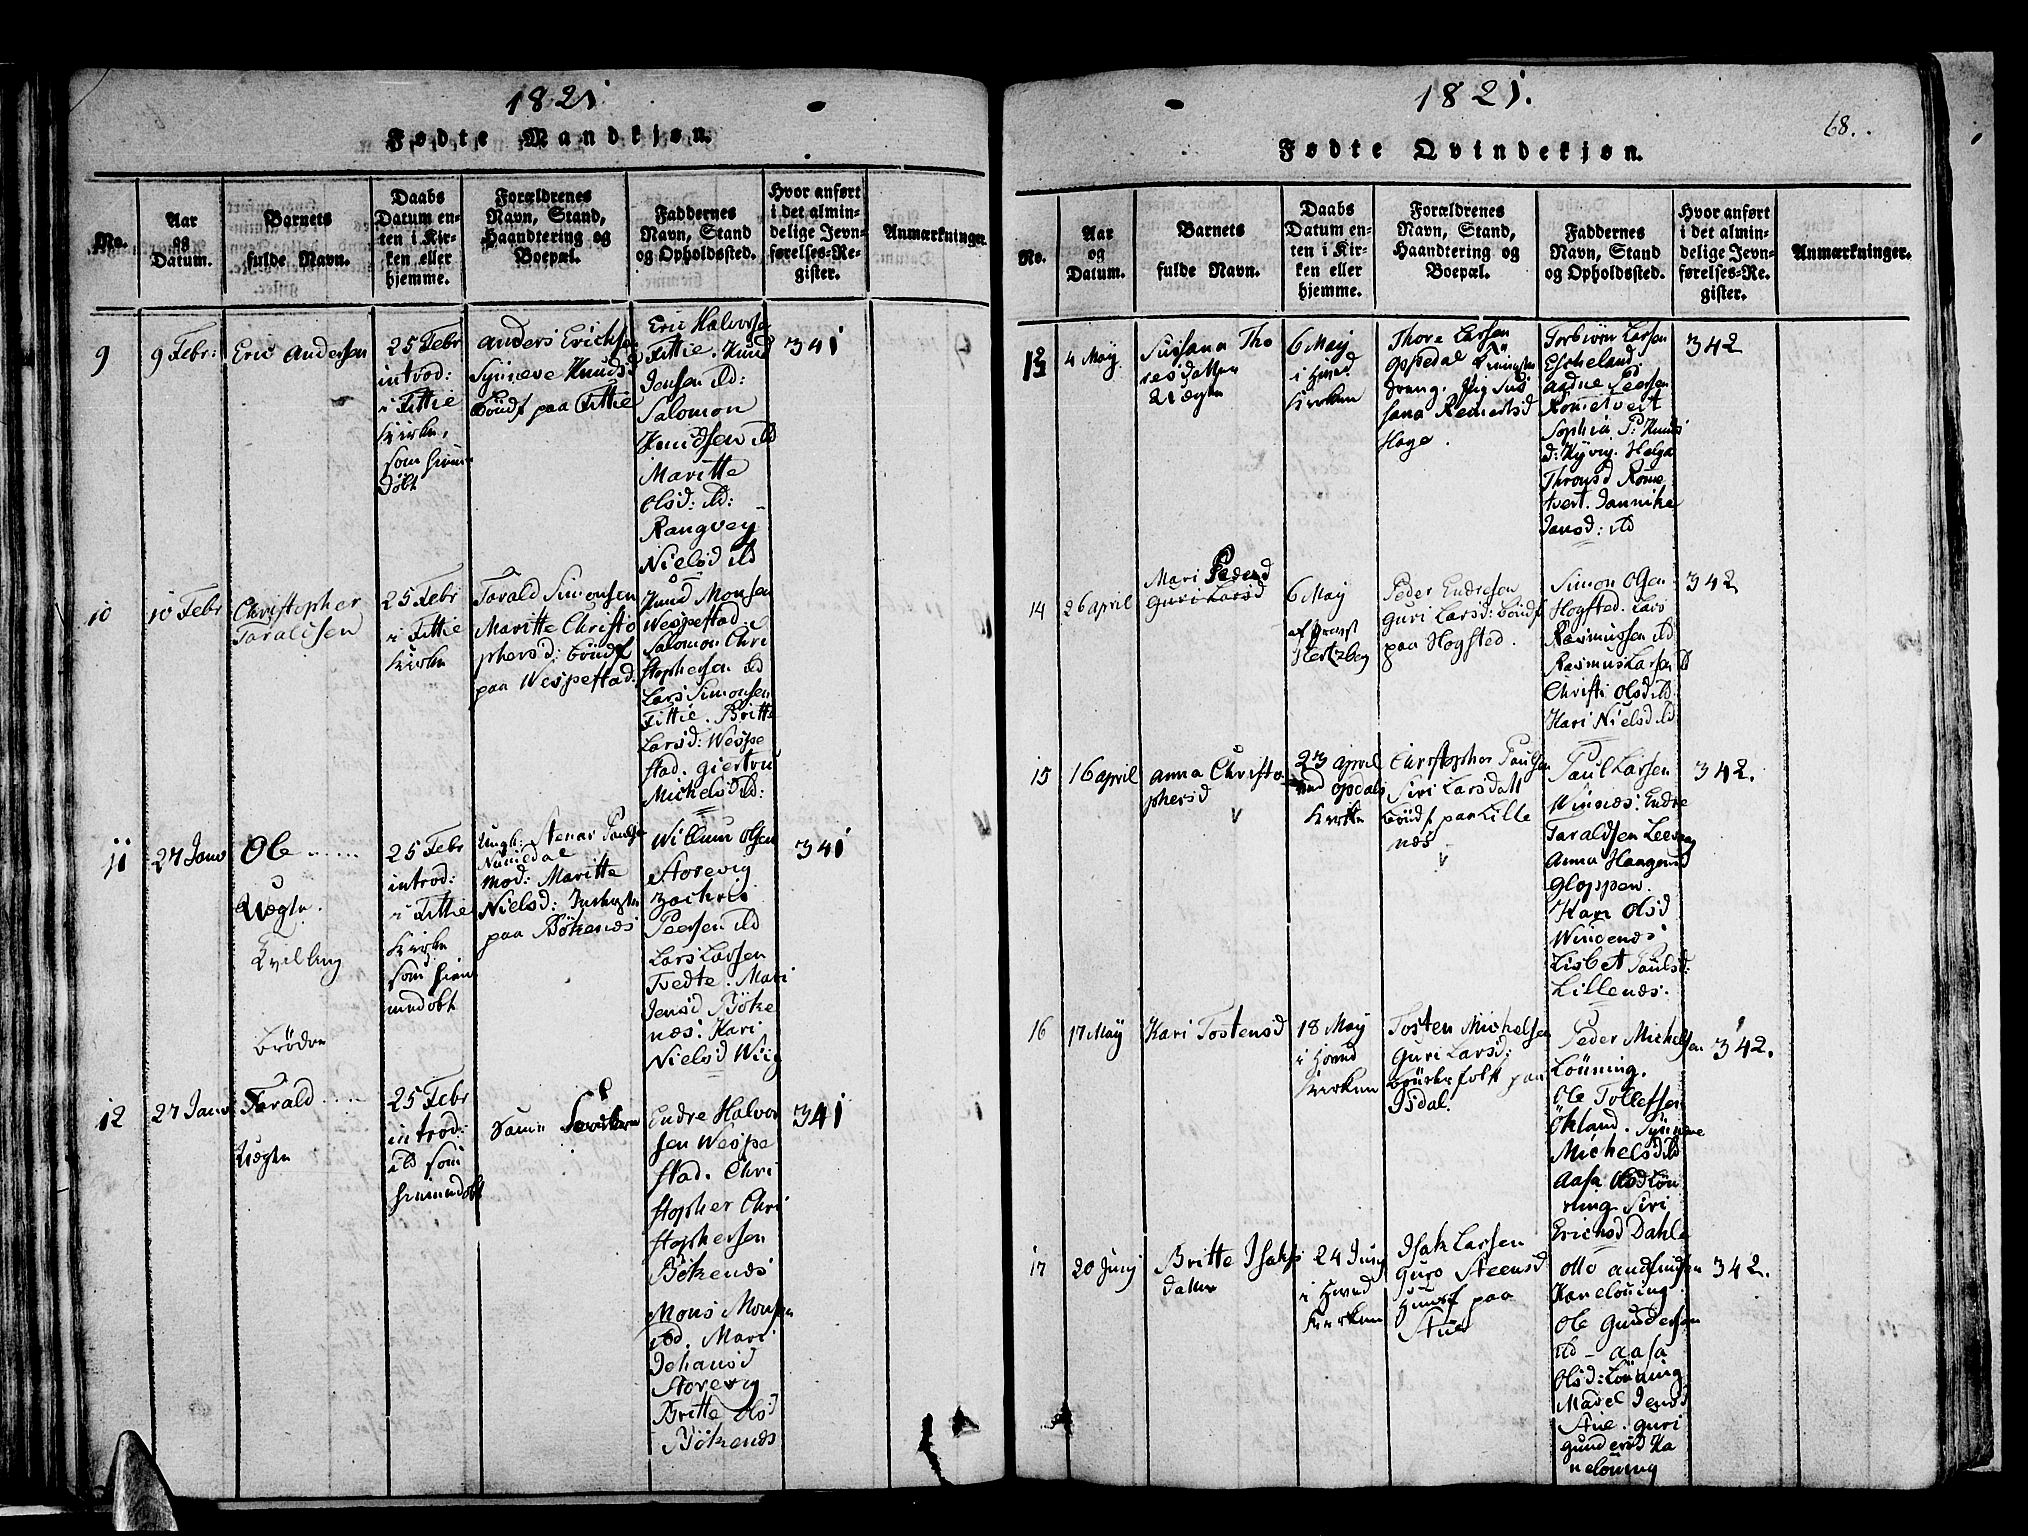 1821
Fødte Mandkjøn.
No.
Aar
og
Datum.
Barnets
fulde Navn.
Daabs
Datum en-
ten i Kir-
ken eller
hjemme.
Forældrenes
Navn, Stand,
Haandtering og
Boepæl.
Faddernes
Navn, Stand
og Opholdssted.
Hvor anført
i det almin-
delige Jevn-
førelses-Re-
gister.
Anmærkninger.
9
9 Febr:
Eric Andersen
25 Febr
introd:
i Fittie
Kirke,
som hiem
døbt
Anders Ericksen
Synneve Knudsd
Böndf paa Fittie
Eric Halvorsen
Fittie. Knud
Jensen ibd:
Salomon
Knudsen ibd
Maritte
Olsd: ibd:
Rangvey
Nielsd ibd
341
10
10 Febr
Christopher
Taraldsen
25 Febr
i Fittie
Kirke
Tarald Simonsen
Maritte Christo
phersd: böndf
paa Wespestad.
Knud Monsen
Wespestad.
Salomon Chri
stophersen ibd
Lars Simonsen
Fittie. Britte
Larsd: Wespe
stad. Giertrud
Michelsd ibd:
11
27 Janv
Ole
Uægte.
Tvilling
Brödre
25 Febr
introd:
i Fittie
Kirke
som hiem
medobt
Ungk: Stenar Paulsen
Numedal
Mod: Maritte
Nielsd:
paa Bökenæs
Willum Olsen
Storevig
Zachris
Peersen ibd
Lars Larsen
Tvedte. Mari
Jensd Böke
næs. Kari
Nielsd Wiig
341
12
27 Janv
Tarald
Uægte
25 Febr
introd:
ibd som
hiemmedobt
Samme Forældre
Endre Halvor
sen Wespe
stad. Chri
stopher Chri
stophersen
Bökenæs
Mons Monsen
ibd. Mari
Johansd
Storevig
Britte Olsd
Bökenæs
341
1821.
68.
Fødte Qvindekjøn.
No.
Aar
og
Datum.
Barnets
fulde Navn.
Daabs
Datum en-
ten i Kir-
ken eller
hjemme.
Forældrenes
Navn, Stand,
Haandtering og
Boepæl.
Faddernes
Navn, Stand
og Opholdssted.
Hvor anført
i det almin-
delige Jevn-
førelses-Re-
gister.
Anmærkninger.
13
4 May
Susana Tho
resdatter
Uægte
6 May
i Hoved
Kirken
Thore Larsen
Opsedal
dreng. Pig Su
sana Reinertsd
Hage.
Torbiörn Larsen
Eskeland.
Aadne Peersen
Rometvert
Sophia P: Knuds
d: Kyvig. Helga
Thronsd Rome
tvert. Jannike
Jansd: ibd
342
14
26 april
Mari Pedersd
Guri Larsd
6 May
af Provst
Hertzberg
Peder Endresen
Guri Larsd: böndf
paa Hogsted.
Simon Olsen
Hogsted. Lars
Rasmussen ibd
Rasmus Larsen ibd
Christi Olsd ibd
Kari Nielsd ibd
342
15
16 april
Anna Christo
phersd
23 april
ved Opdals
Kirke
Christopher Paulsen
Siri Larsdatt
böndf paa Lille
næs
Paul Larsen
Windnæs: Endre
Taraldsen Leervag
Anna Haagensd
Gloppen.
Kari Olsd
Windenæs
Lisbet Paulsd:
Lillenæs.
342.
16
17 May
Kari Tostensd
18 May
i Hoved
Kirken
Tosten Michelsen
Guri Larsd:
brugerfolk paa
Isdal.
Peder Michelsen
Löuning.
Ole Tollefsen
Ökland. Synneve
Michelsd ibd
Aasa Olsd Löu
ning. Siri
Erichsd Dahle
342.
17
20 Juny
Britte Isachs
datter
24 Juny
i Hoved
Kirken
Isak Larsen
Guro Steensd
Huusf paa
Stue
Otto Andfindsen
Kanelöning.
Ole Gundersen
ibd - Aasa
Olsd: Löuning
Marel Jensd
Stue. Guri
Gundersd Ka
nelöuning
342.